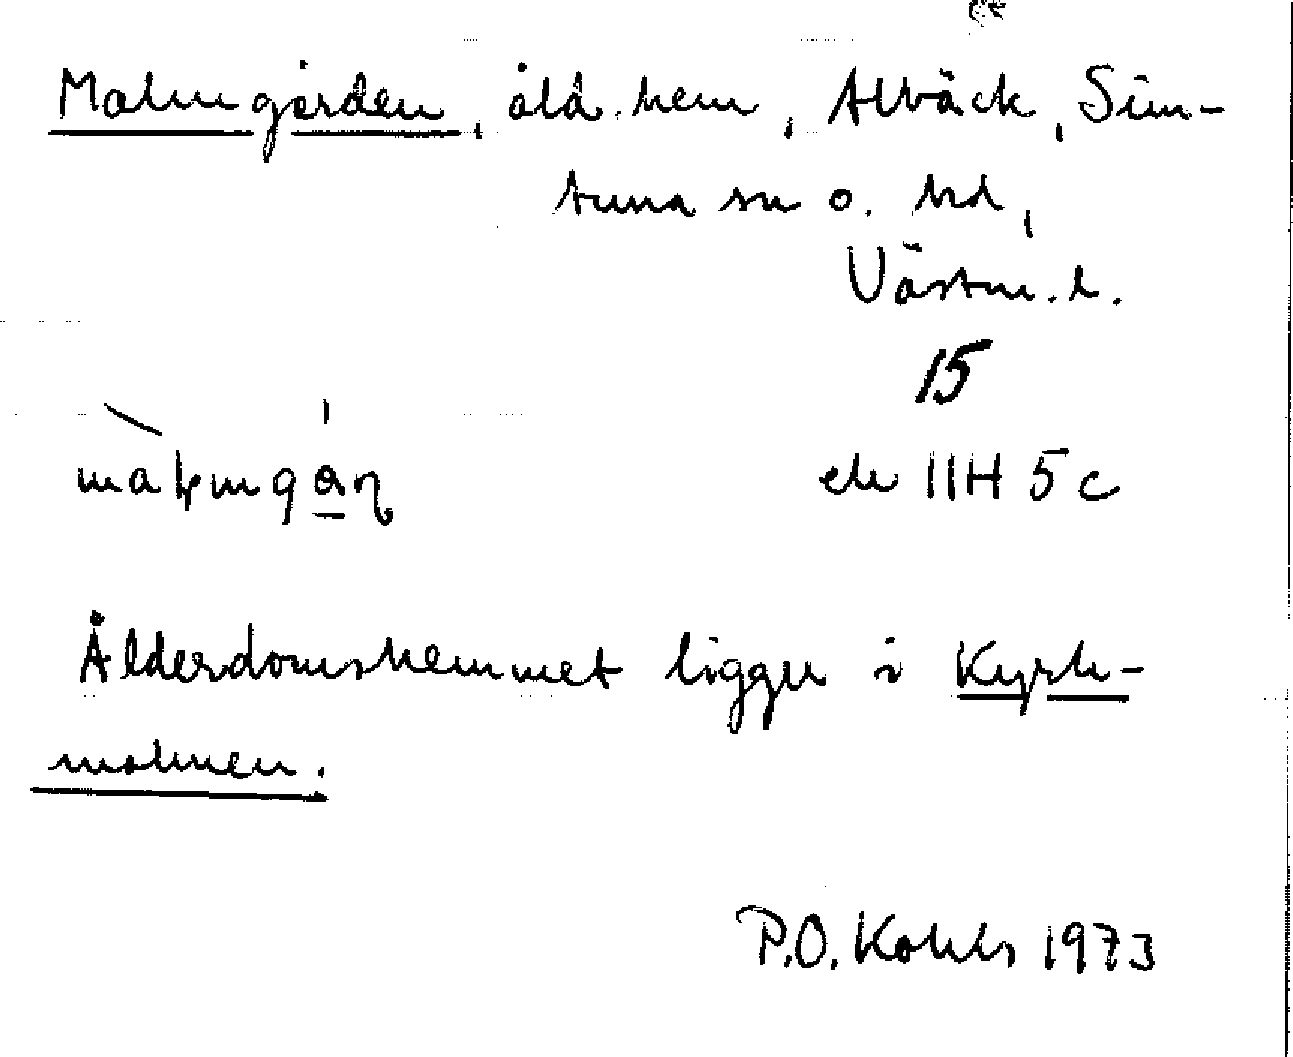 Malmgården, åld.hem, Albäck, Sim-
tuna sn o. hd,
Västm.l.
15
ek 11H 5c
Ålderdomshemmet ligger i Kyrk-
malmen.
P.O. Kohls 1973